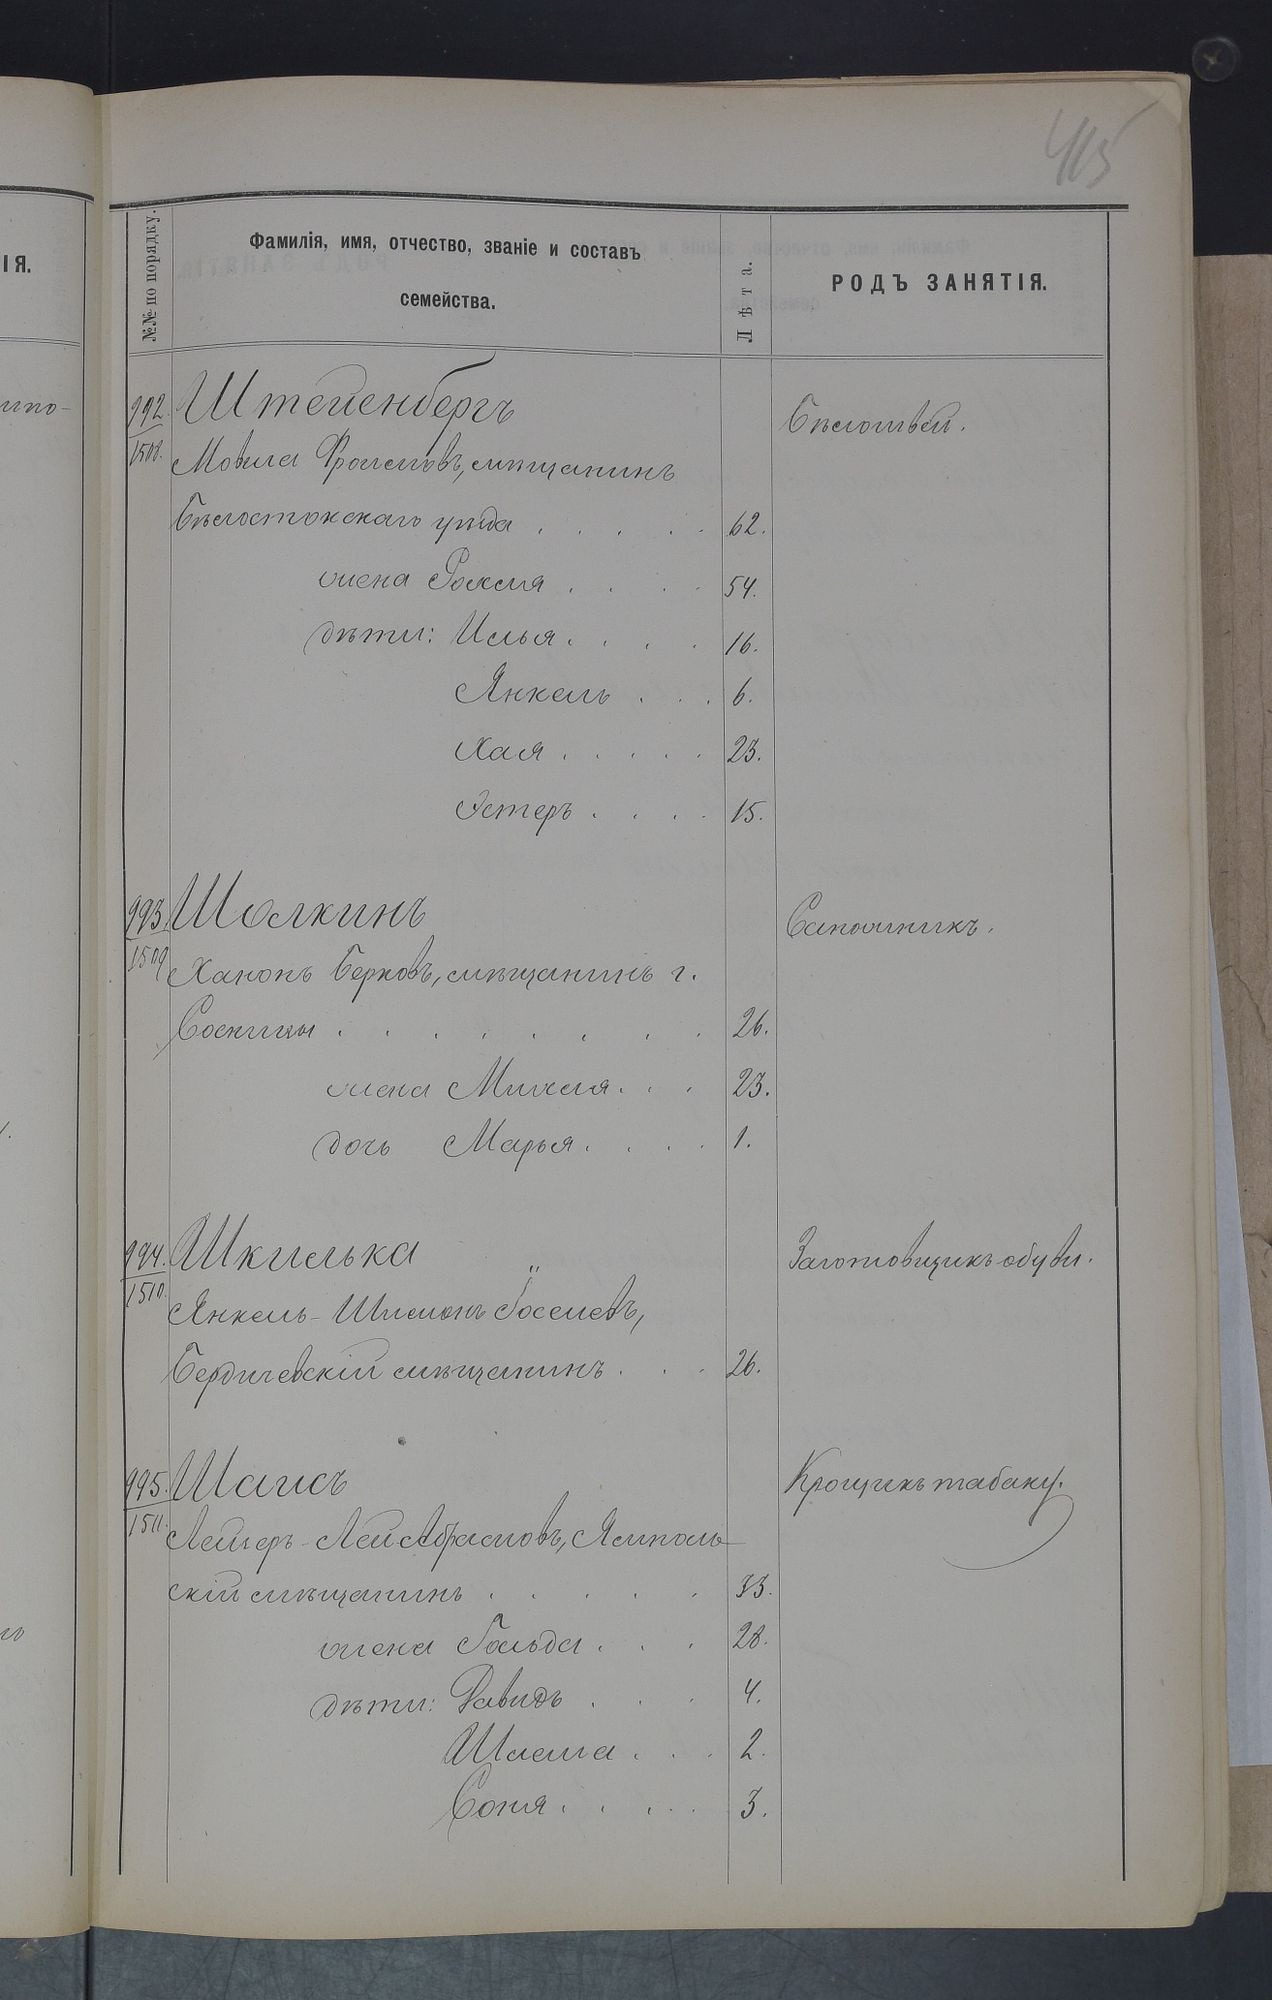 415
№№ по порядку.
Фамилія, имя, отчество, званіе и составъ
семейства.
Лѣта.
РОДЪ ЗАНЯТІЯ.
ІЯ.
992.
1508.
Штейенбергъ
Бѣлошвей.
Мовша Фроимовъ, мѣщанинъ
Бѣлостокскаго уѣзда . . . . . 62.
жена Рохля . . . . 54.
дѣти: Илья . . . . 16.
Янкель . . . 6.
Хая . . . . . 23.
Эстеръ . . . . 15.
993.
1509
Шолкинъ
Сапожникъ.
Ханонъ Берковъ, мѣщанинъ г.
Сосницы . . . . . . . . 26.
жена Михля . . . 23.
дочь Марья . . . . 1.
994.
1510.
Шкилька
Заготовщикъ обуви.
Янкель-Шлемонъ Іоселевъ,
Бердичевскій мѣщанинъ . . . 26.
995.
1511.
Шаисъ
Крошикъ табаку.
Лейзеръ-Лейб Абрамовъ, Ямполь
скій мѣщанинъ . . . . . 33.
жена Гольда . . . 28.
дѣти: Давидъ . . . 4.
Шлема . . . 2.
Соня . . . . . 3.